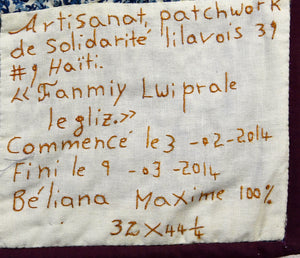 Artisanat, patchwork
de Solidarité lilavois 39
#9 Haïti.
«Fanmiy Lwi prale
legliz.»
Commencé le 3 -02-2014
Fini le 9 -03 -2014
Béliana Maxime 100%
32 x 44 1/4